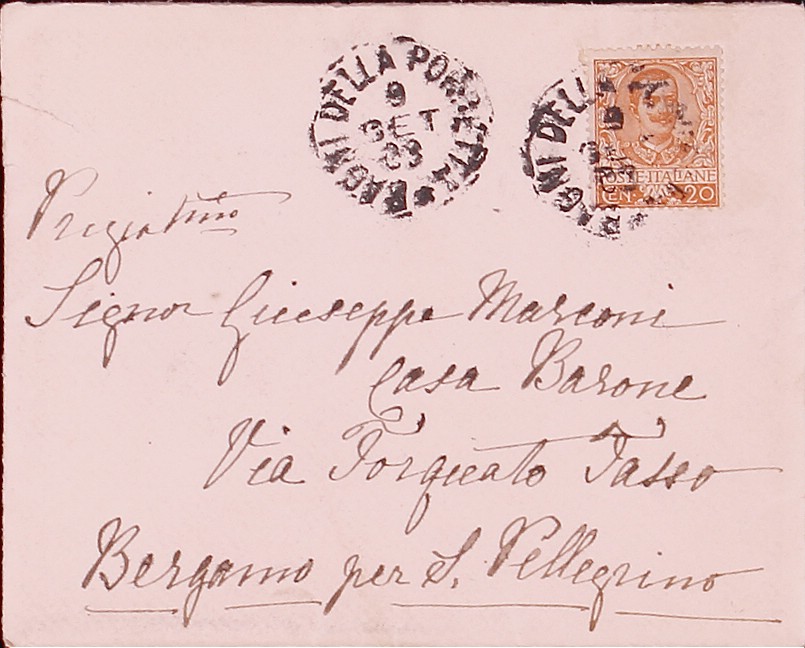 BAGNI DELLA PORRETTA
9
SET
BAGNI DELLA
POSTE ITALIANE
CEN. 20
Signor Giuseppe Marconi
Casa Barone
Via Torquato Tasso
Bergamo per S. Pellegrino